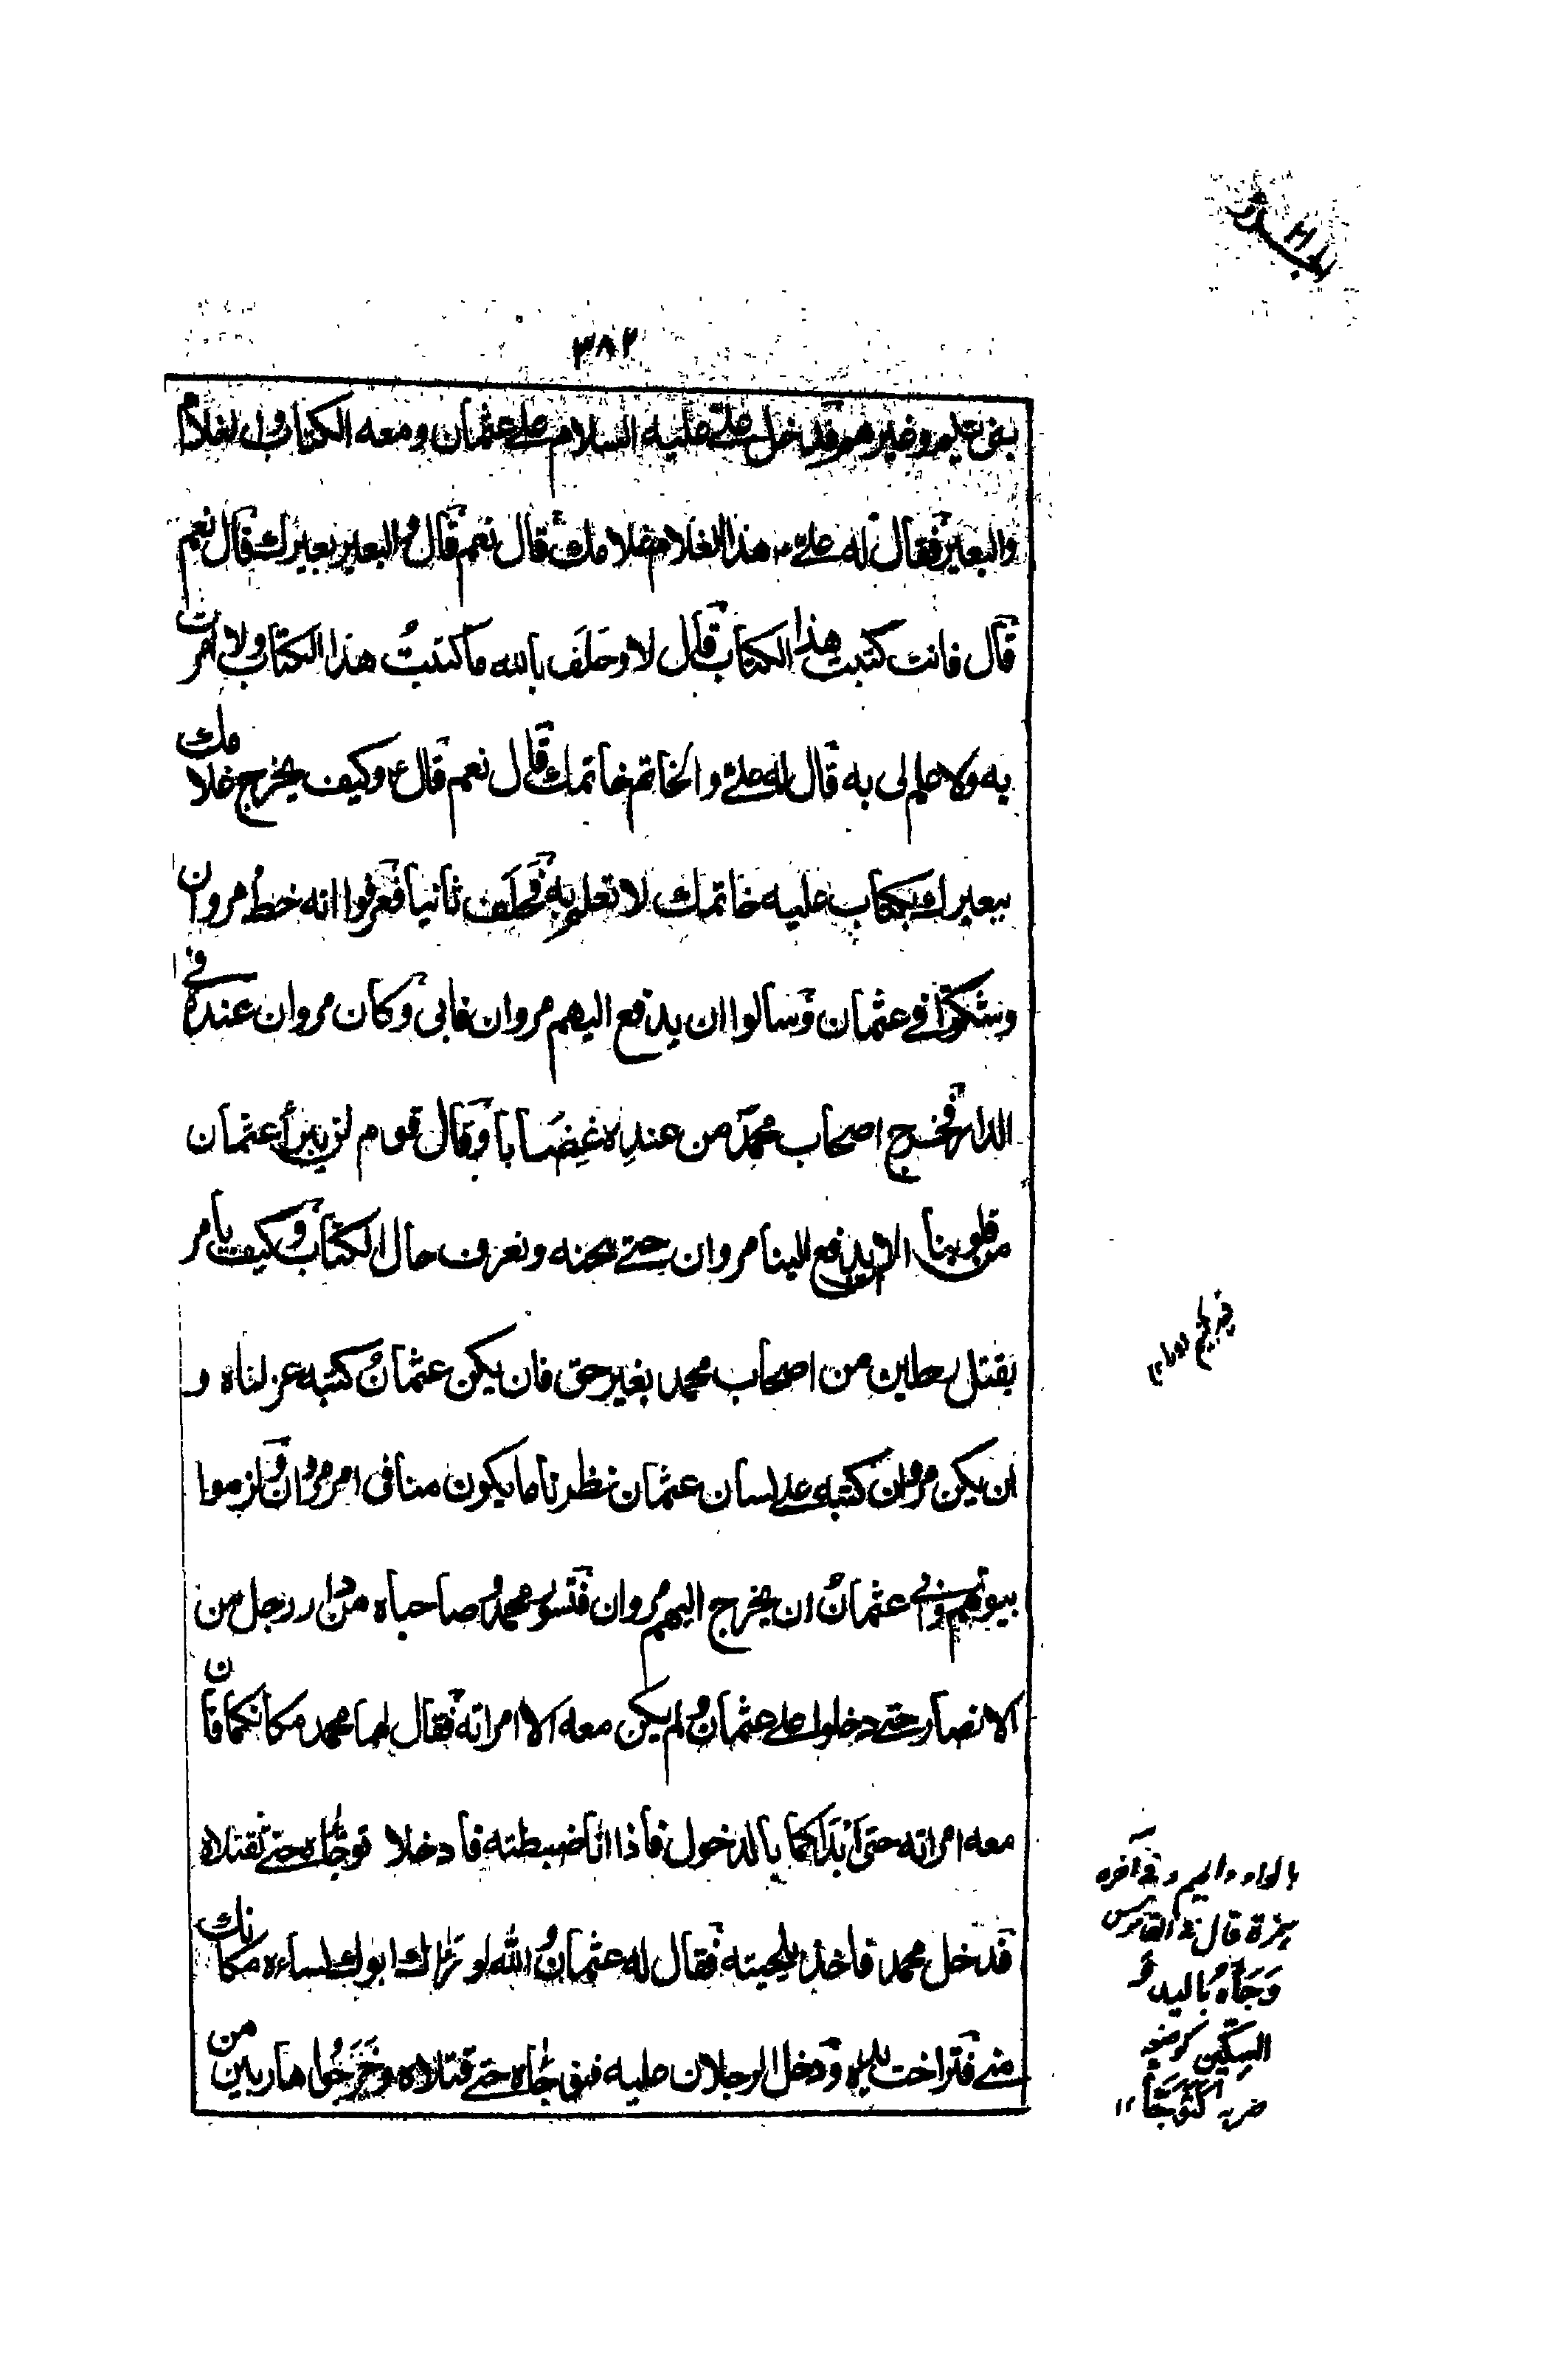 ٣٨٢
فدخل علي عليه السلام على عثمان ومعه الكتاب والغلام
والبعير فقال له علي هذا الغلام غلامك قال نعم قال والبعير بعيرك قال نعم
قال فانت كتبت هذا الكتاب قال لا وحلف بالله ما كتبتُ هذا الكتاب ولا امرت
به ولا علم لى به قال له علي والخاتم خاتمك قال نعم قال ع وكيف يخرج غلامك
ببعيرك بكتاب عليه خاتمك لا تعلم به فحلف ثانيا فعرفوا انه خط مروان
وشكوا في عثمان وسالوا ان يدفع اليهم مروان فابى وكان مروان عنده في
الدار فخرج اصحاب محمد من عنده غِضَابا وقال قوم لن يبرأ عثمان
من قلوبنا الا ان يدفع الينا مروان حتى نمحنه ونعرف حال الكتاب وكيف يامر
بقتل رجلين من اصحاب محمد بغير حق فان يكن عثمانُ كتبه عزلناه و
ان يكن مروان كتبه على لسان عثمان نظرنا ما يكون منا في امر مروان ولزموا
بيوتهم وابى عثمانُ ان يخرج اليهم مروان فتسور محمد وصاحباه من دار رجل من
الانصار حتى دخلوا على عثمان ولم يكن معه الا امراته فقال لهما محمد مكانكما فان
معه امراته حتى أبدَاكما بالدخول فاذا انا ضبطته فادخلا توجّاه حتى تقتلاه
فدخل محمد فاخذ بلحيته فقال له عثمانُ والله لو راك ابوك لساءه مكانك
مني فتراخت يده ودخل الرجلان عليه فوجأاه حتى قتلاه وخَرَجُوا هاربين من
بالواو والجيم وفي آخره
همزة قال في القاموس
وَجَأَهُ باليد و
السكين كوضعه
ضربه كتَوَجَّأ ١٢